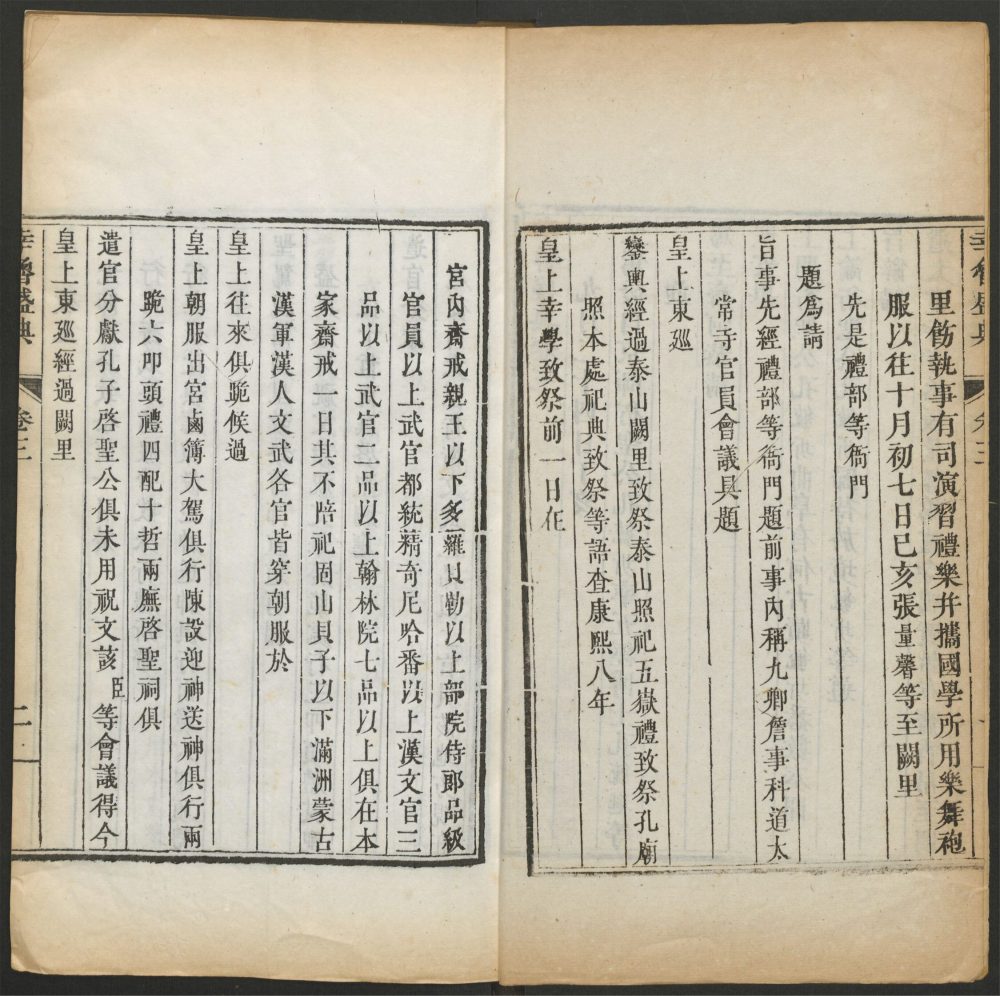 里飭執事有司演習禮樂幷攜國學所用樂舞袍
服以往十月初七日己亥張量馨等至闕里
先是禮部等衙門
題爲請
旨事先經禮部等衙門題前事內稱九卿詹事科道太
常寺官員會議具題
皇上東廵
鑾輿經過泰山闕里致祭泰山照祀五嶽禮致祭孔廟
照本處祀典致祭等語查康熙八年
皇上幸學致祭前一日在
宮內齋戒親王以下多羅貝勒以上部院侍郎品級
官員以上武官都統精奇尼哈番以上漢文官三
品以上武官二品以上翰林院七品以上俱在本
家齋戒一日其不陪祀固山貝子以下滿洲蒙古
漢軍漢人文武各官皆穿朝服於
皇上往來俱跪候過
皇上朝服出宮鹵簿大駕俱行陳設迎神送神俱行兩
跪六叩頭禮四配十哲兩廡啓聖祠俱
遣官分獻孔子啓聖公俱未用祝文該臣等會議得今
皇上東廵經過闕里
幸魯盛典
卷三
二